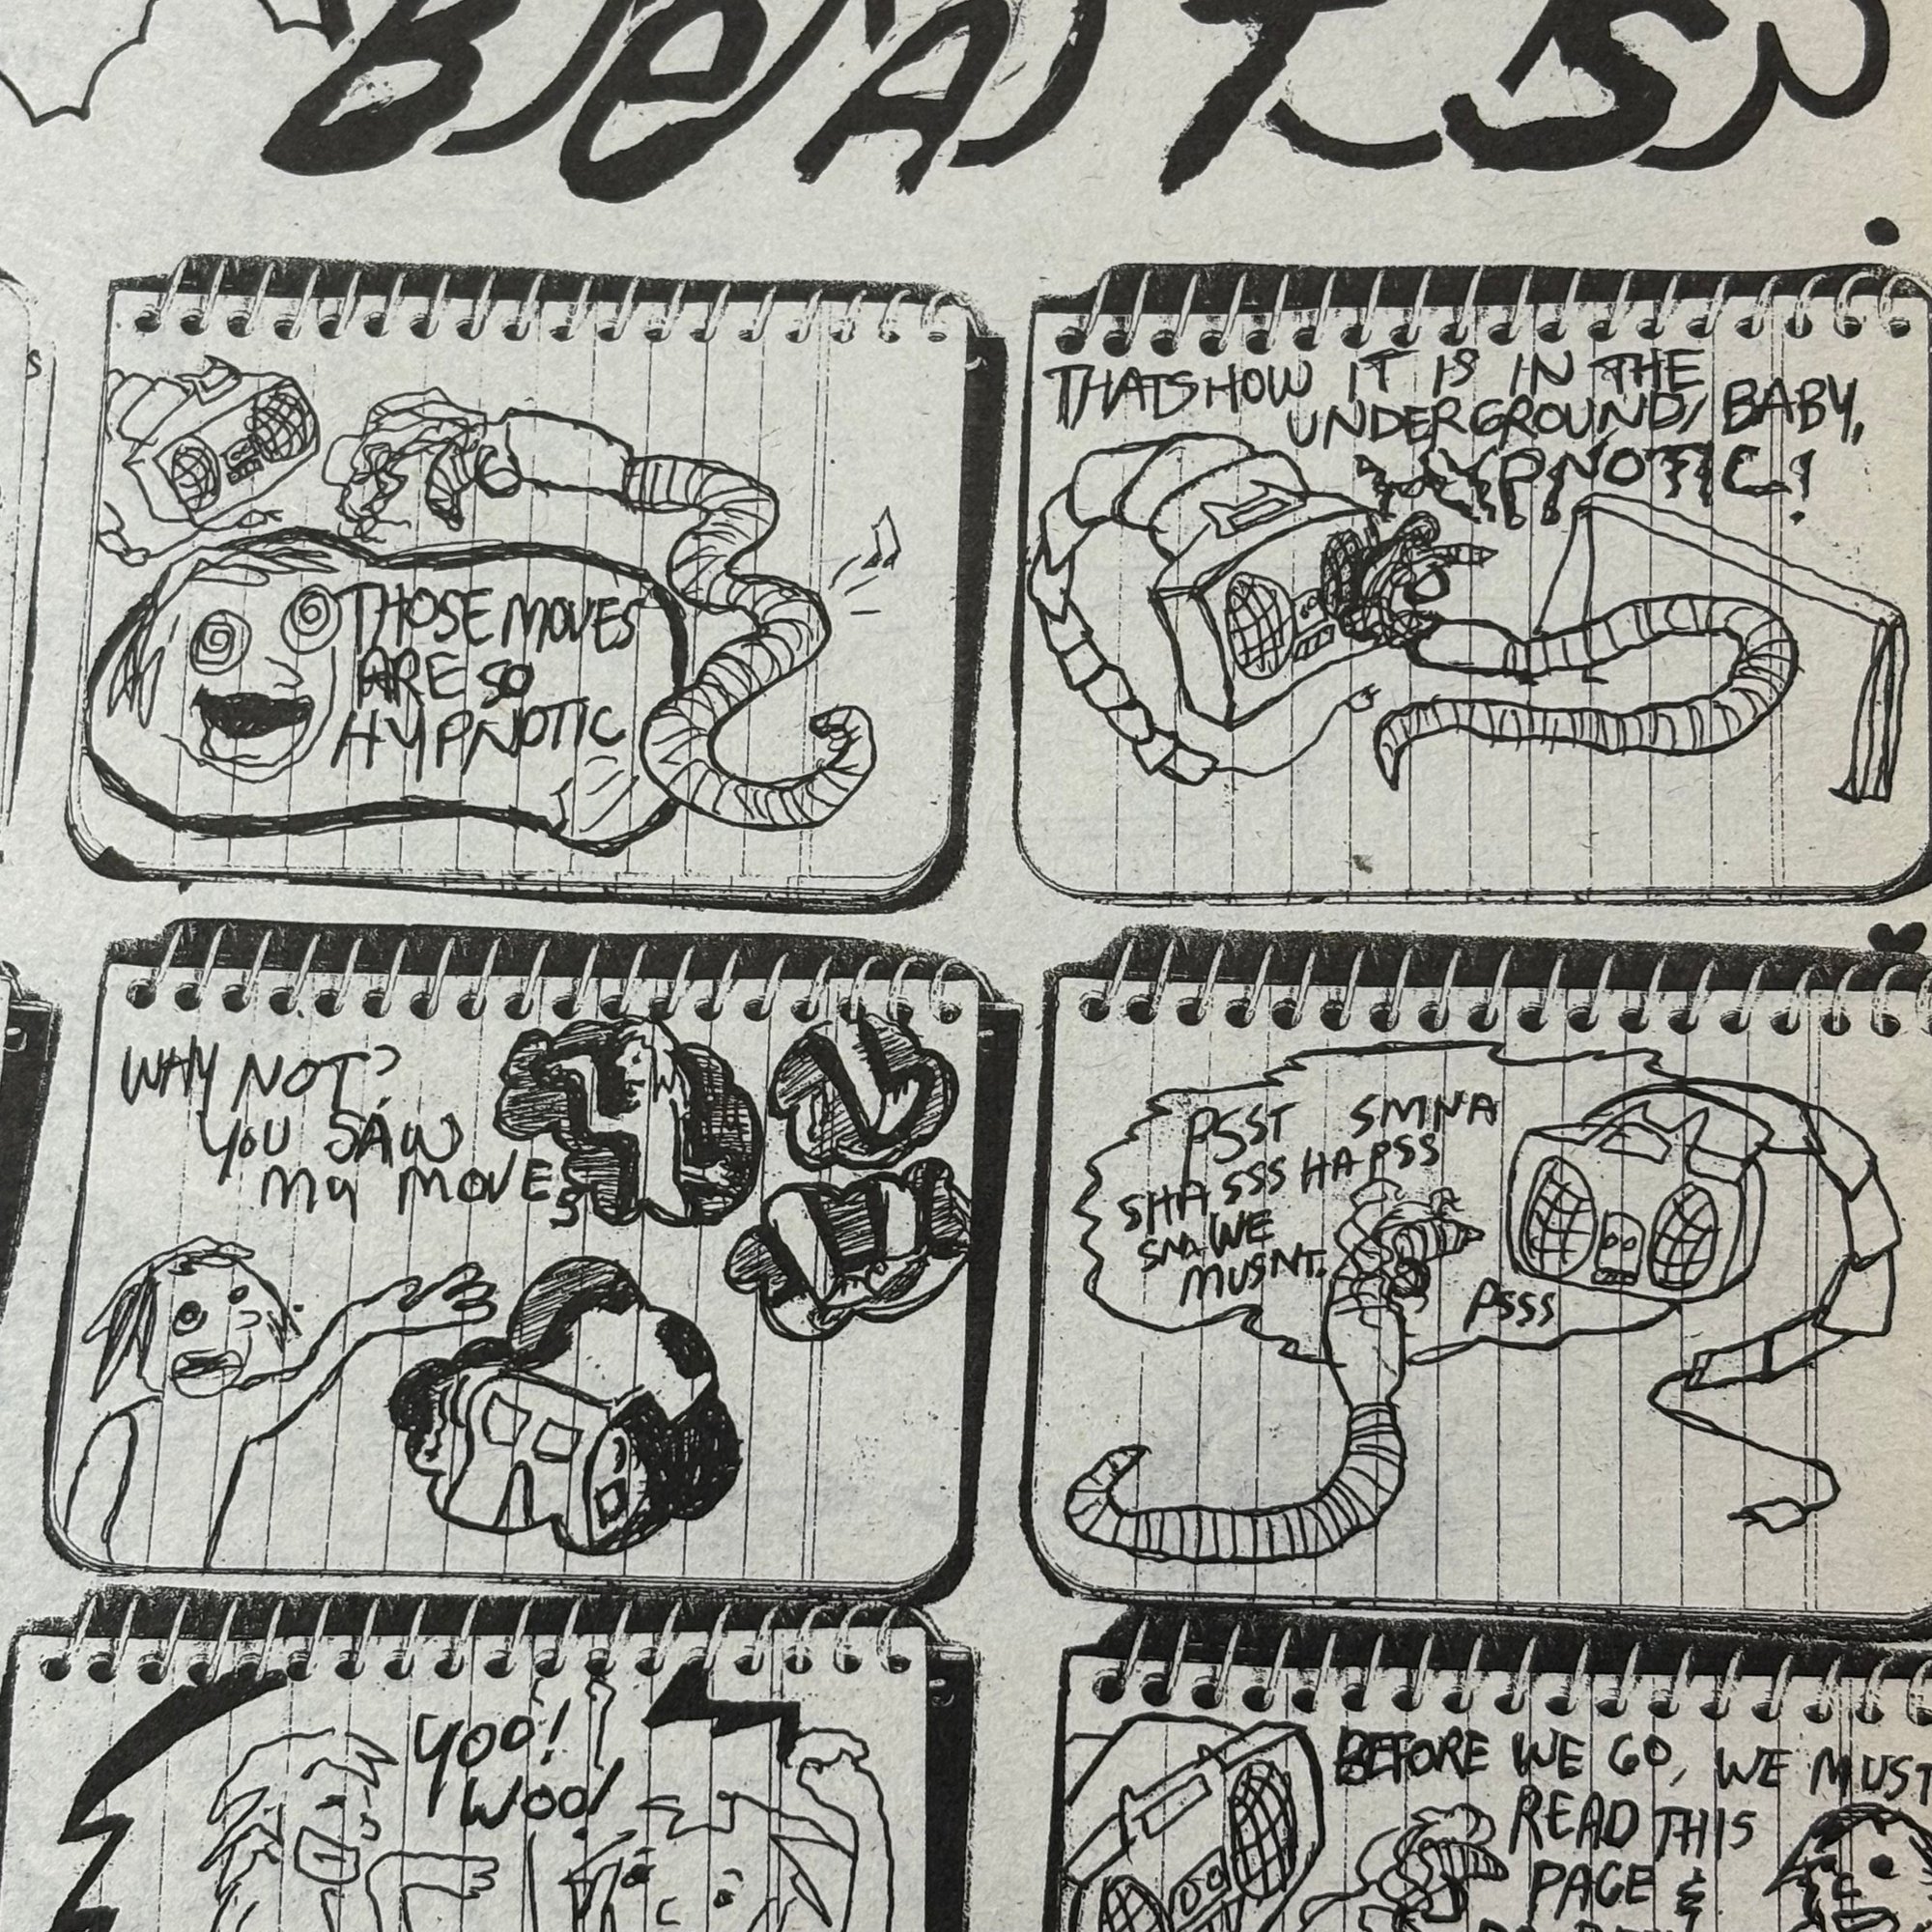 BEATS
THOSE MOVES
ARE SO
HYPNOTIC
THATS HOW IT IS IN THE
UNDERGROUND, BABY,
HYPNOTIC!
WHY NOT?
YOU SAW
MY MOVES
PSST SMNA
SHA SSS HA PSS
SNA WE
MUSNT.
PSSS
YOO!
WOO!
BEFORE WE GO, WE MUST
READ THIS
PAGE &